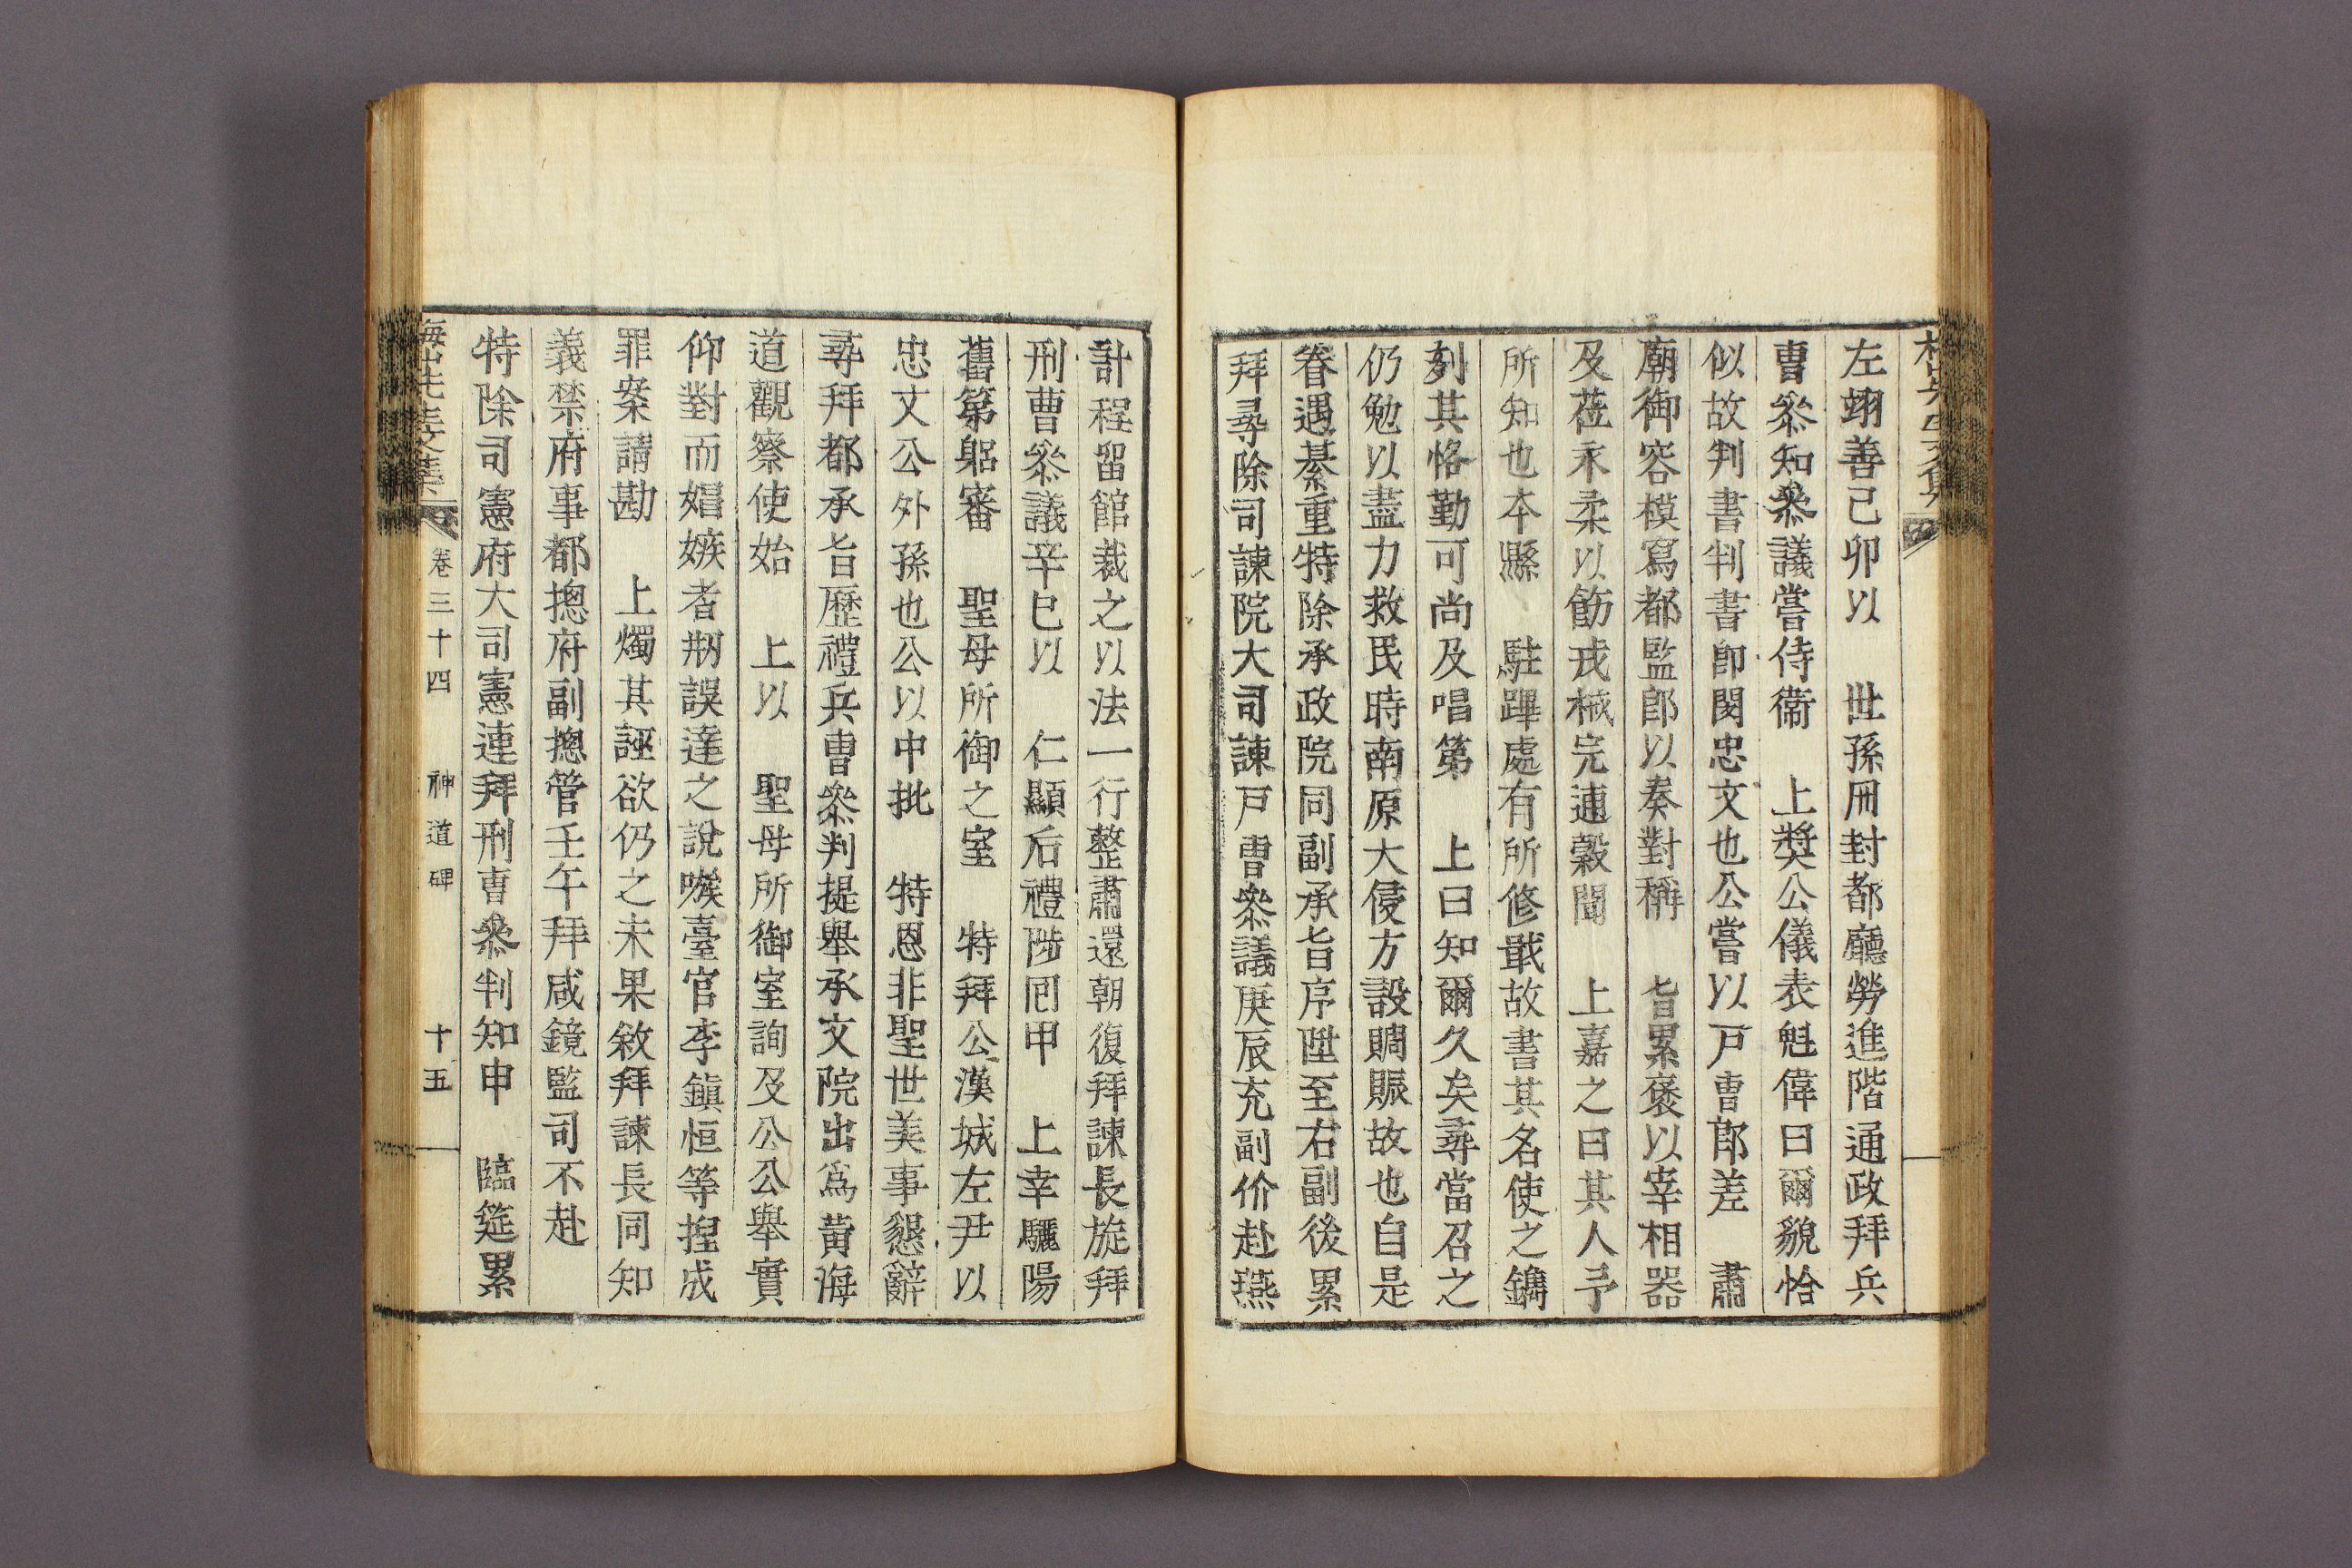 左翊善己卯以　世孫冊封都廳勞進階通政拜兵
曹叅知叅議嘗侍衞　上奬公儀表魁偉曰爾貌恰
似故判書判書卽閔忠文也公嘗以戶曹郎差　肅
廟御容模寫都監郎以奏對稱　旨累褒以宰相器
及莅禾柔以飭戎械完逋糓聞　上嘉之曰其人予
所知也本縣　駐蹕處有所修戢故書其名使之鐫
刻其恪勤可尚及唱第　上曰知爾久矣尋當召之
仍勉以盡力救民時南原大侵方設賙賑故也自是
眷遇綦重特除承政院同副承旨序陞至右副後累
拜尋除司諫院大司諫戶曹叅議庚辰充副价赴燕
計程留館裁之以法一行整肅還朝復拜諫長旋拜
刑曹叅議辛巳以　仁顯后禮陟囘甲　上幸驪陽
舊第躬審　聖母所御之室　特拜公漢城左尹以
忠文公外孫也公以中批　特恩非聖世美事懇辭
尋拜都承旨歷禮兵曹叅判提舉承文院出爲黃海
道觀察使始　上以　聖母所御室詢及公公舉實
仰對而娼嫉者刱誤達之說嗾臺官李鎭恒等揑成
罪案請勘　上燭其誣欲仍之未果敘拜諫長同知
義禁府事都摠府副摠管壬午拜咸鏡監司不赴
特除司憲府大司憲連拜刑曹叅判知申　臨筵累
卷三十四　神道碑　十五